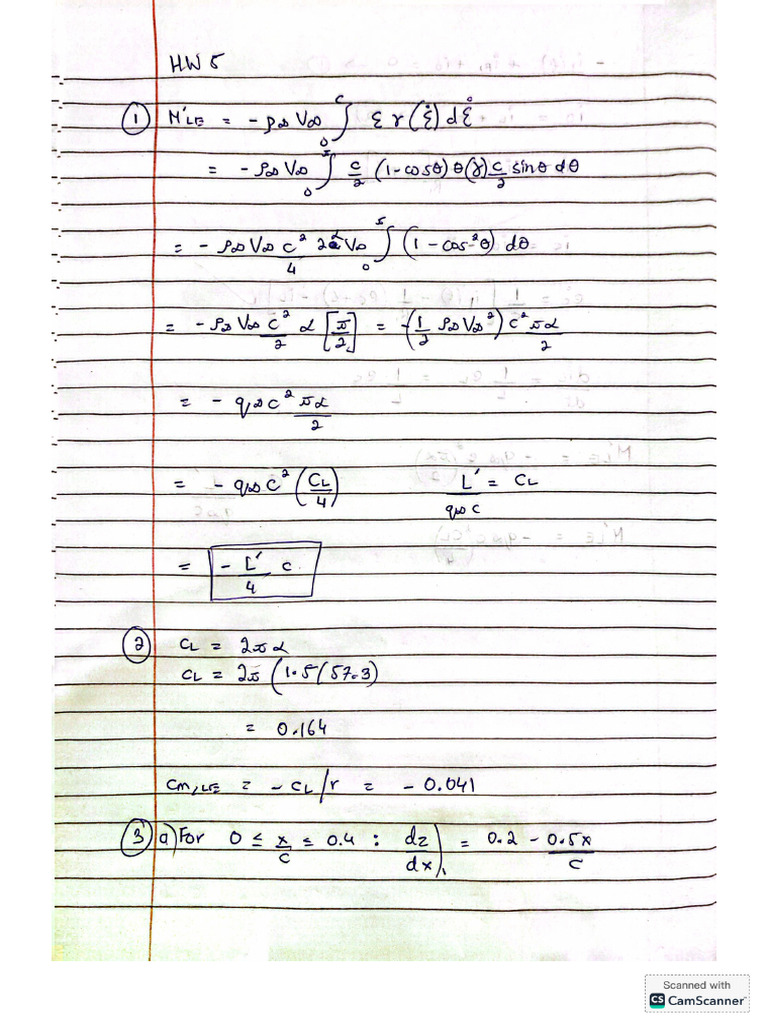 HW 5
① M'LE = - ρ∞ V∞ ∫₀ᶜ ξ γ(ξ) dξ
= - ρ∞ V∞ ∫₀^π c/2 (1-cosθ) θ(γ) c/2 sinθ dθ
= - ρ∞ V∞ c²/4 2αV∞ ∫₀^π (1 - cos²θ) dθ
= - ρ∞ V∞ c²/2 α [π/2] = -(1/2 ρ∞ V∞²) c² πα/2
= - q∞ c² πα/2
= - q∞ c² (CL/4) L'/q∞c = CL
= - L'/4 c
② CL = 2πα
CL = 2π (1.5/57.3)
= 0.164
Cm,LE = - CL/r = - 0.041
③ a) For 0 ≤ x/c ≤ 0.4 : dz/dx)₁ = 0.2 - 0.5x/c
Scanned with
CS CamScanner